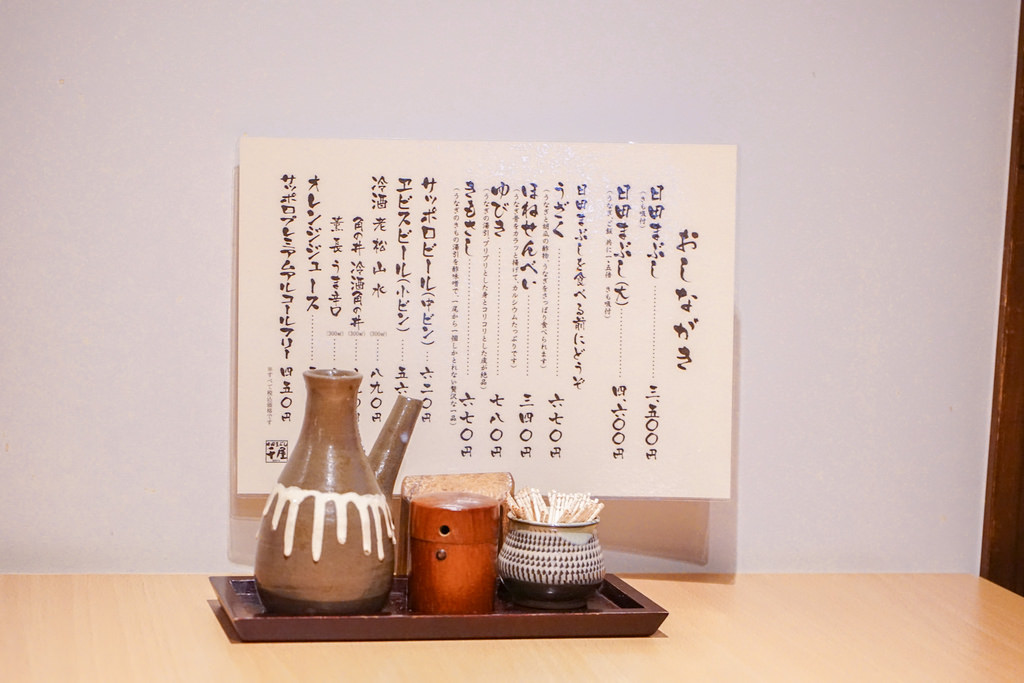 おしながき
日田まぶし 三、五〇〇円
(きも吸付)
日田まぶし(大) 四、六〇〇円
(うなぎ、ご飯 共に一・五倍 きも吸付)
日田まぶしを食べる前にどうぞ
うざく 六七〇円
(うなぎと胡瓜の酢物、うなぎをさっぱり食べられます)
ほねせんべい 三四〇円
(うなぎ骨をカラッと揚げて、カルシウムたっぷりです)
ゆびき 七八〇円
(うなぎの湯引、プリプリとした身とコリコリとした皮が絶品)
きもさし 六七〇円
(うなぎのきもの湯引を酢味噌で、一尾から一個しかとれない贅沢な一品)
サッポロビール(中ビン) 六二〇円
ヱビスビール(小ビン) 五六
冷酒 老松 山水 (300ml) 八九〇円
角の井 冷酒角の井 (300ml) 〇円
薫長 うま辛口 (300ml)
オレンジジュース
サッポロプレミアムアルコールフリー 四五〇円
※すべて税込価格です
日田まぶし
千屋